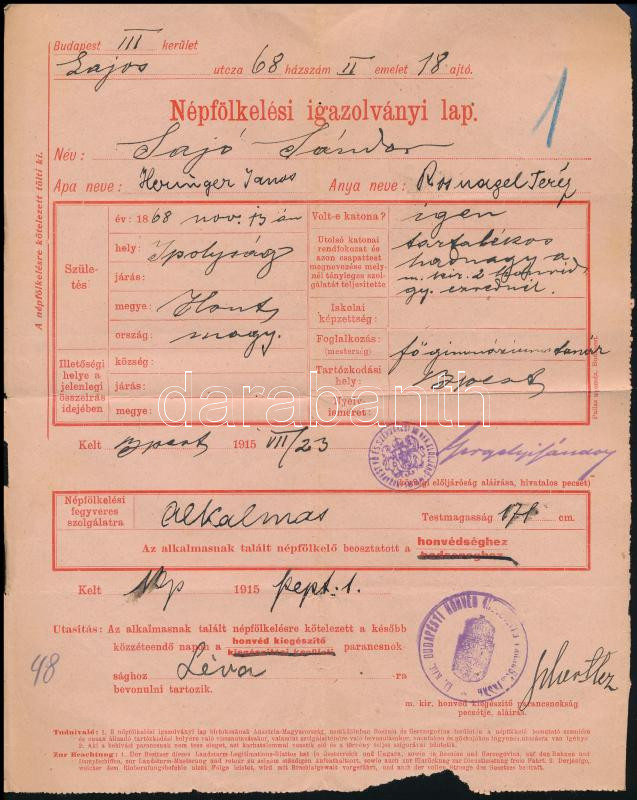 Budapest III kerület
Lajos utcza 68 házszám II emelet 18 ajtó.
1
Népfölkelési igazolványi lap.
Név: Sajó Sándor
Apa neve: Heringer János Anya neve: Teréz
A népfölkelésre kötelezett tölti ki.
Születés
év: 1868 nov. 13 án
hely: Ipolyság
járás:
megye: Hont
ország: magy.
Illetőségi helye a jelenlegi összeírás idejében
község:
járás:
megye:
Volt-e katona? igen
Utolsó katonai rendfokozat és azon csapattest megnevezése melynél tényleges szolgálatát teljesítette
tartalékos
hadnagy a
m. kir. 2 honvéd
gy. ezrednél.
Iskolai képzettség:
Foglalkozás: (mesterség) főgimnáziumi tanár
Tartózkodási hely: Bpest
Nyelvismeret:
Pallas nyomda, Budapest.
darabanth
Kelt Bpest 1915 VII/23
(községi elöljáróság aláírása, hivatalos pecsét)
Népfölkelési fegyveres szolgálatra alkalmas Testmagasság 171 cm.
Az alkalmasnak talált népfölkelő beosztatott a honvédséghez
hadsereghez
Kelt Bp 1915 szept. 1.
Utasítás: Az alkalmasnak talált népfölkelésre kötelezett a később
közzéteendő napon a honvéd kiegészítő
kiegészítési kerületi parancsnok-
48
sághoz Léva -ra
bevonulni tartozik.
M. KIR. BUDAPESTI HONVÉD
m. kir. honvéd kiegészítő parancsnokság
pecsétje, aláírás.